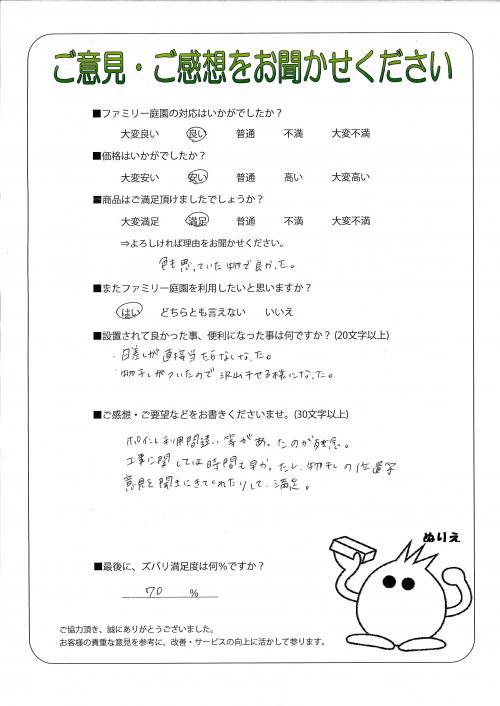 ご意見・ご感想をお聞かせください
■ファミリー庭園の対応はいかがでしたか？
大変良い 良い 普通 不満 大変不満
■価格はいかがでしたか？
大変安い 安い 普通 高い 大変高い
■商品はご満足頂けましたでしょうか？
大変満足 満足 普通 不満 大変不満
⇒よろしければ理由をお聞かせください。
色も思っていた物で良かった。
■またファミリー庭園を利用したいと思いますか？
はい どちらとも言えない いいえ
■設置されて良かった事、便利になった事は何ですか？(20文字以上)
・日差しが直接当たらなくなった。
・物干しがついたので沢山干せる様になった。
■ご感想・ご要望などをお書きくださいませ。(30文字以上)
ポイント利用間違い等があったのが残念。
工事に関しては時間も早かったし、物干しの位置等
意見を聞きにきてくれたりして、満足。
ぬりえ
■最後に、ズバリ満足度は何%ですか？
70 %
ご協力頂き、誠にありがとうございました。
お客様の貴重な意見を参考に、改善・サービスの向上に活かして参ります。